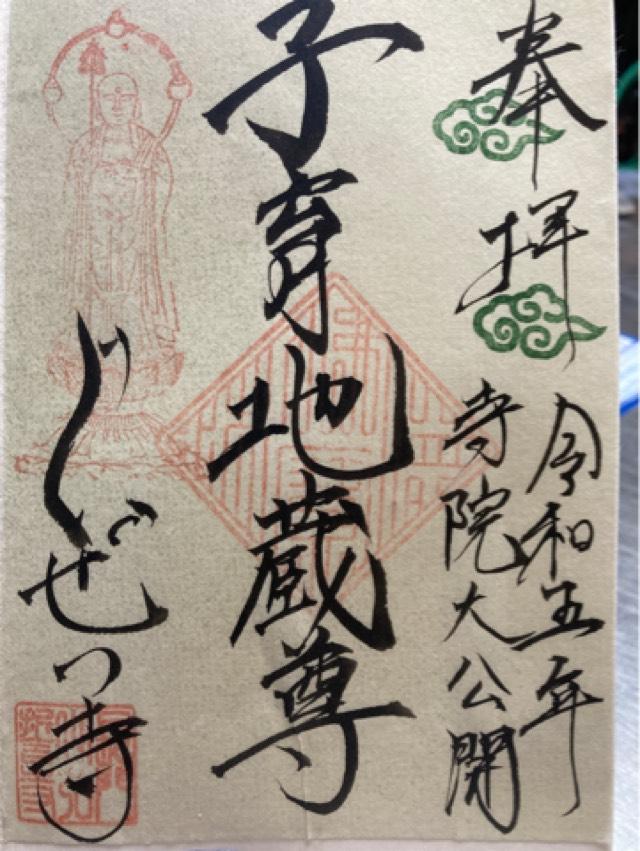 奉拝
令和五年
寺院大公開
子育地蔵尊
じぜつ寺